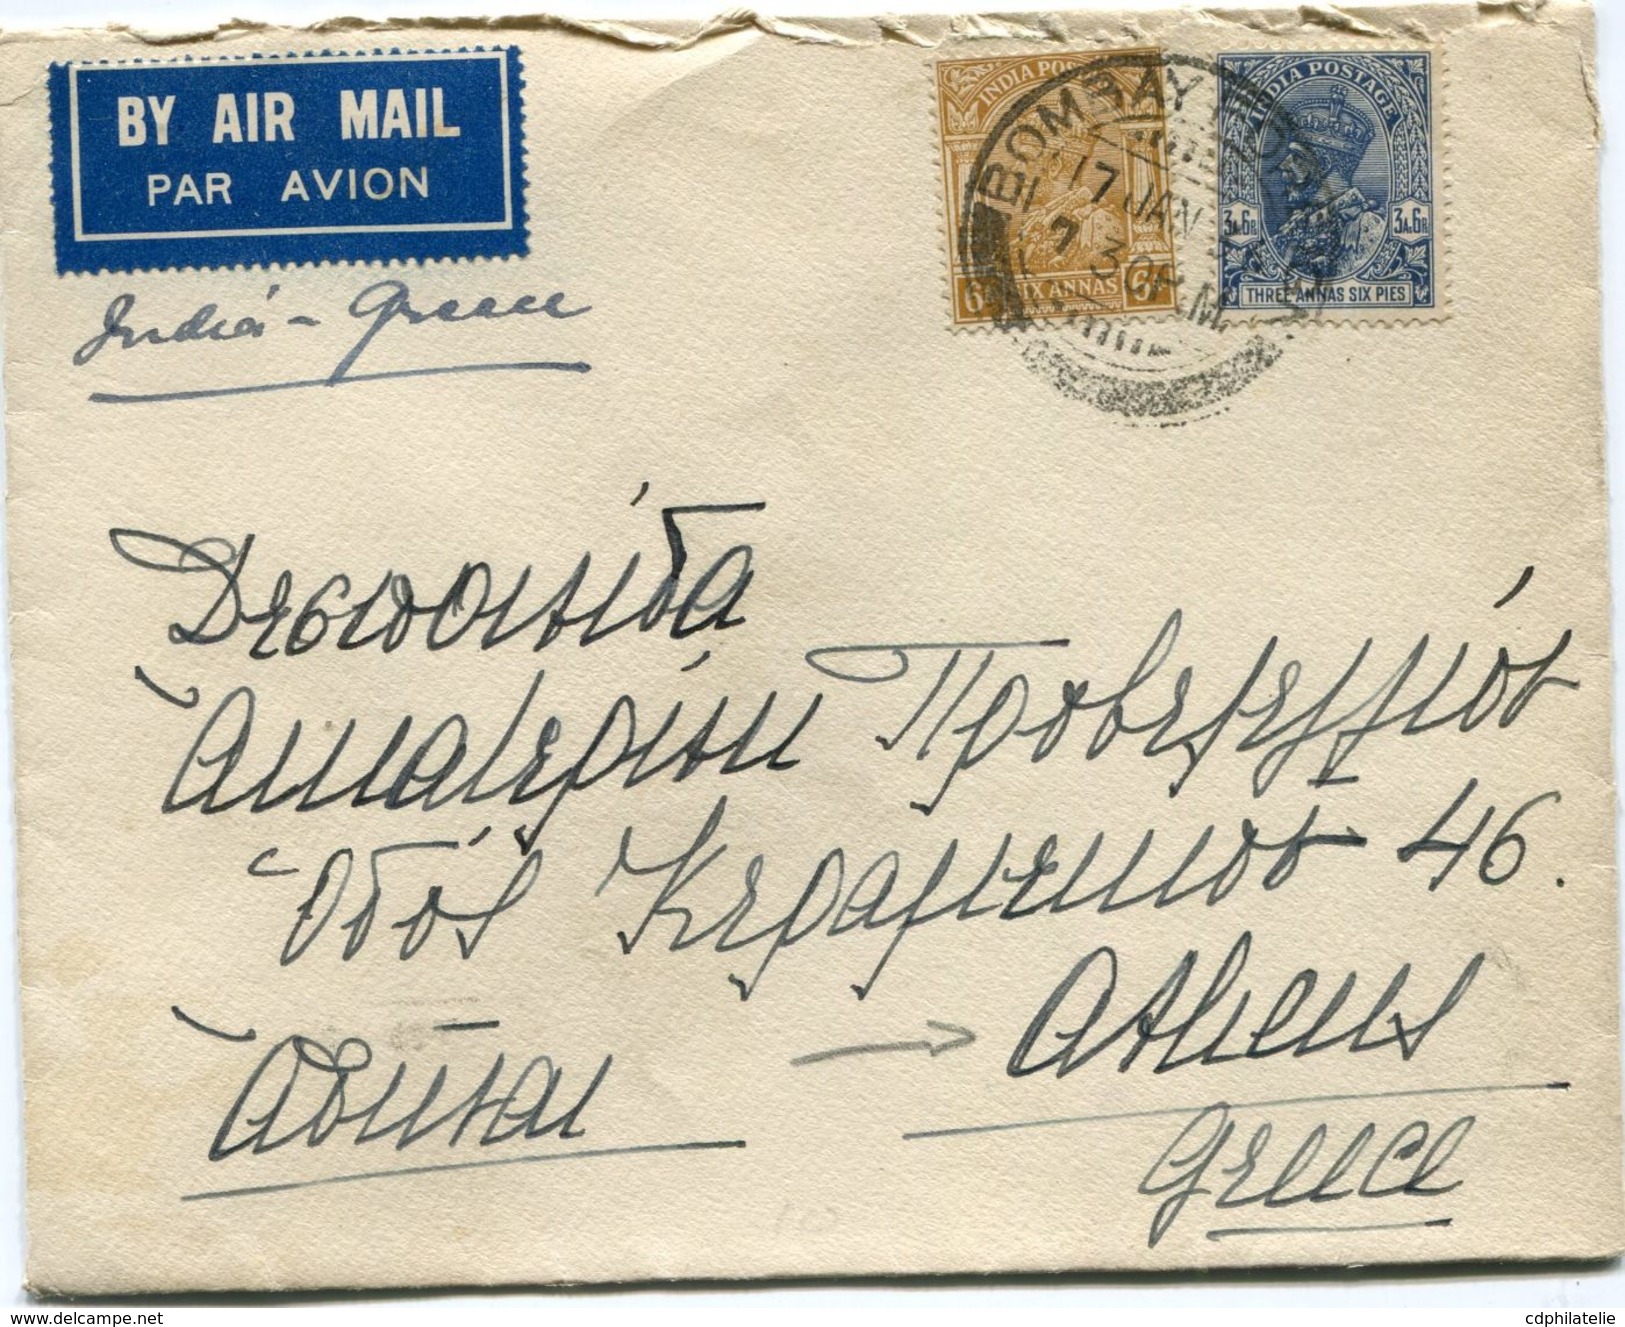 BY AIR MAIL
PAR AVION
India - Greece
INDIA POSTAGE
SIX ANNAS
6
BOMBAY
17 JAN
7 30 P.M
INDIA POSTAGE
3A.6P.
3A.6P.
THREE ANNAS SIX PIES
Δεσποινίδα
Αικατερίνη
Ὁδός Κεραμεικού 46.
Αθήναι
Athens
Greece
cdphilatelie.com